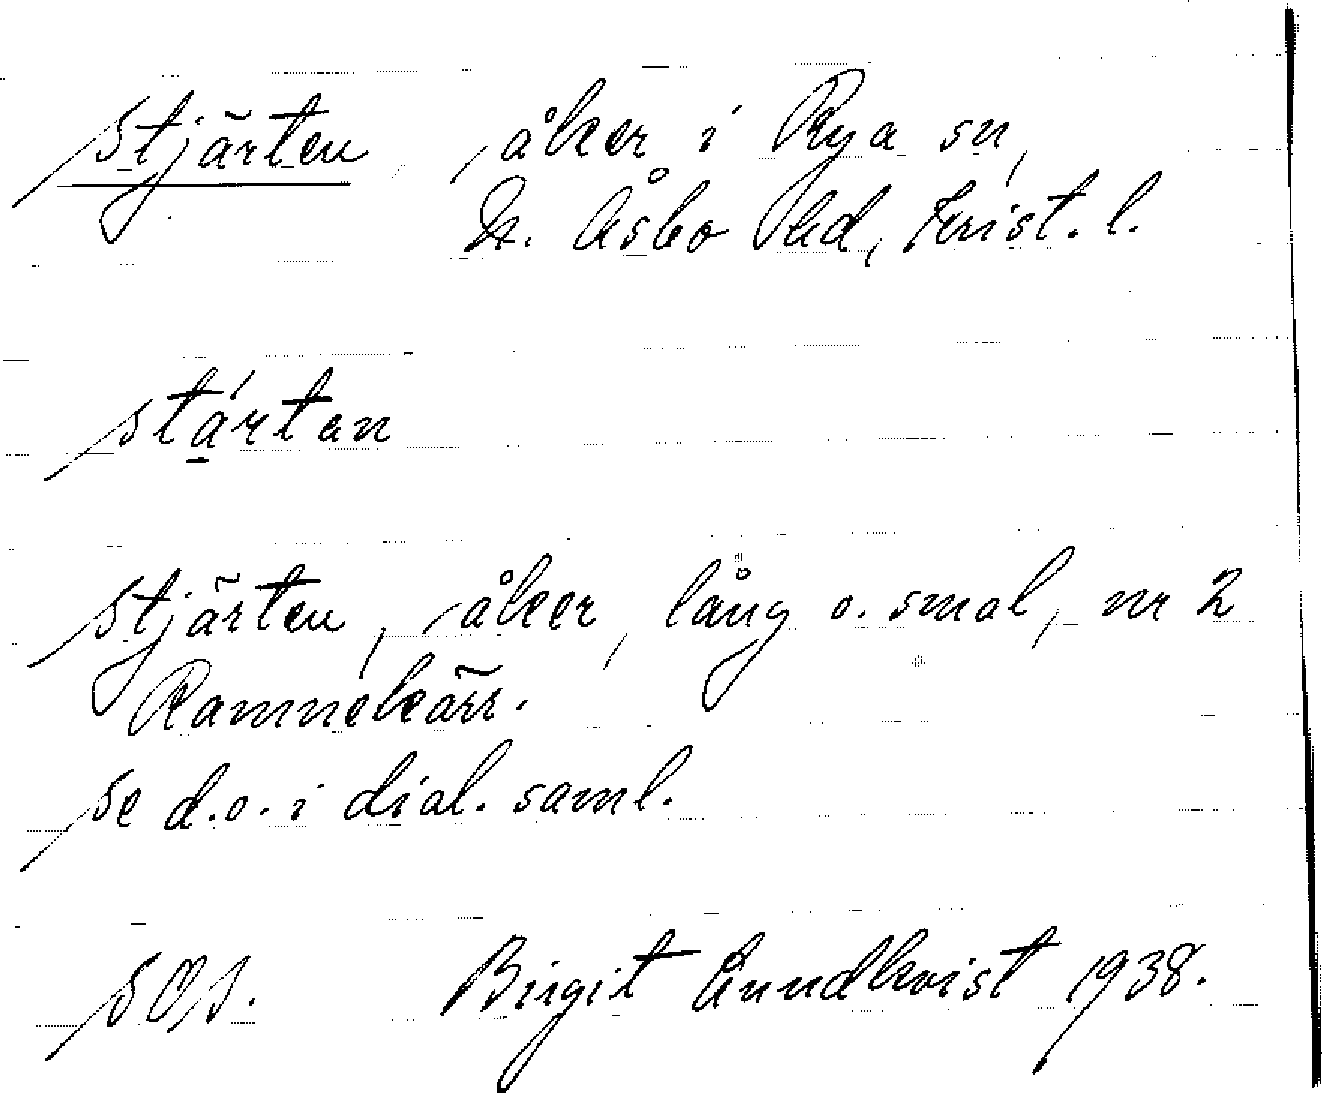 Stjärten, åker i Rya sn,
N. Åsbo hd, Krist. l.
stártan
Stjärten, åker, lång o. smal, nr 2
Ramnekärr.
Se d.o. i dial. saml.
Birgit Lundkvist 1938.